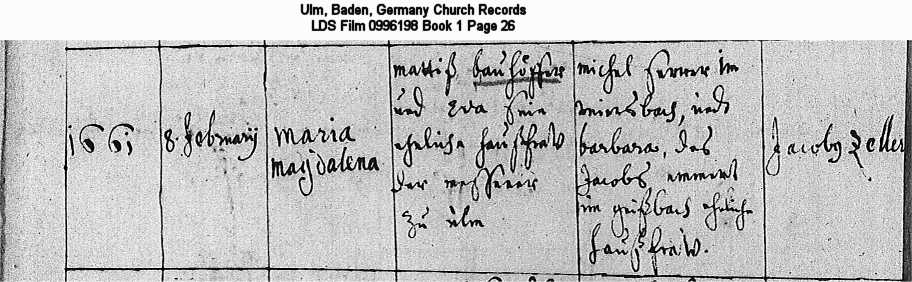 Ulm, Baden, Germany Church Records
LDS Film 0996198 Book 1 Page 26
1661
8. Februarij
Maria
Magdalena
Mattiß Bauhöffer
und Eva sein
ehelich haußfraw
der
zu Ulm
Michel im
bach, und
Barbara, des
Jacobs
im geißbach ehliche
haußfraw.
Jacobus Zeller